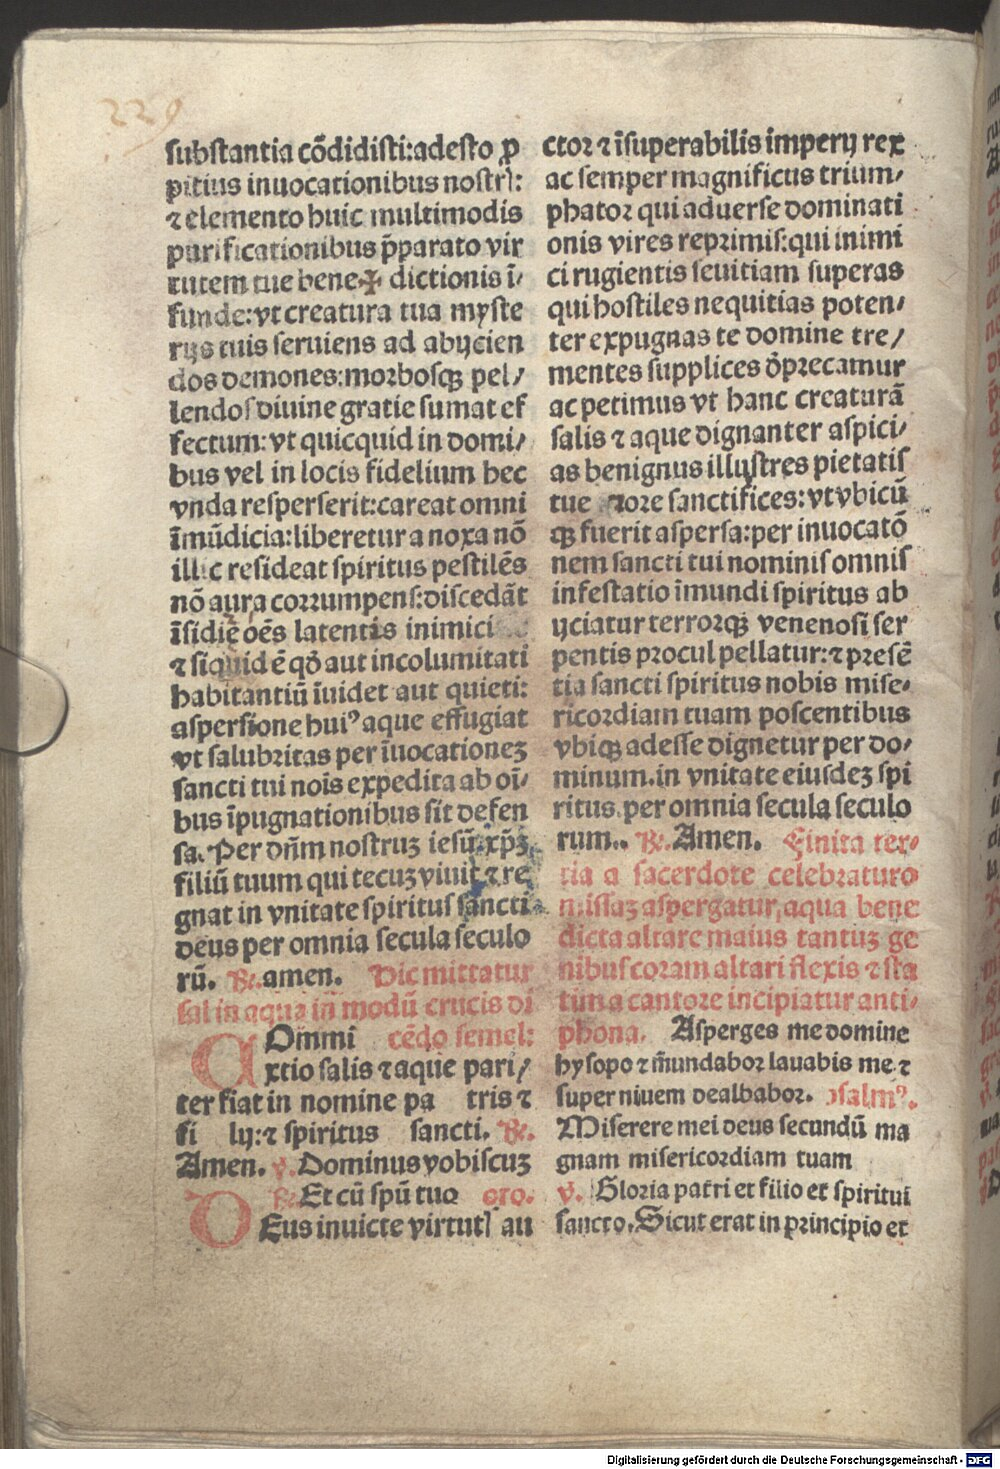 229
substantia cōdidisti:adesto ꝓ
pitius inuocationibus nostrꝭ:
⁊ elemento huic multimodis
purificationibus p̄parato vir
tutem tue bene✠ dictionis ī⸗
funde:vt creatura tua myste
rijs tuis seruiens ad abijcien
dos demones:morbosqꝫ pel⸗
lendos diuine gratie sumat ef
fectum:vt quicquid in domi⸗
bus vel in locis fidelium hec
vnda resperserit:careat omni
īmūdicia:liberetur a noxa nō
illic resideat spiritus pestilēs
nō aura corrumpens:discedāt
īsidię oēs latentis inimici
⁊ siquid ē qd̄ aut incolumitati
habitantiū īuidet aut quieti:
aspersione huiꝰ aque effugiat
vt salubritas per īuocationeꝫ
sancti tui noīs expedita ab oī⸗
bus īpugnationibus sit defen
sa. Per dn̄m nostruꝫ iesū xp̄ꝫ
filiū tuum qui tecuꝫ viuit ⁊ re
gnat in vnitate spiritus sancti
deus per omnia secula seculo
rū. ℟. amen. Dic mittatur
sal in aqua in modū crucis di
COmmi cēdo semel:
xtio salis ⁊ aque pari⸗
ter fiat in nomine pa tris ⁊
fi lij:⁊ spiritus sancti. ℟.
Amen. ℣. Dominus vobiscuꝫ
℟. Et cū spū tuo oro.
DEus inuicte virtutꝭ au
ctor ⁊ īsuperabilis imperij rex
ac semper magnificus trium⸗
phator qui aduerse dominati
onis vires reprimis:qui inimi
ci rugientis seuitiam superas
qui hostiles nequitias poten⸗
ter expugnas te domine tre⸗
mentes supplices d̄precamur
ac petimus vt hanc creaturā
salis ⁊ aque dignanter aspici⸗
as benignus illustres pietatis
tue rore sanctifices:vt vbicū
qꝫ fuerit aspersa:per inuocatō
nem sancti tui nominis omnis
infestatio īmundi spiritus ab
ijciatur terrorqꝫ venenosi ser
pentis procul pellatur:⁊ presē
tia sancti spiritus nobis mise⸗
ricordiam tuam poscentibus
vbiqꝫ adesse dignetur per do⸗
minum.in vnitate eiusdeꝫ spi
ritus.per omnia secula seculo
rum.. ℟. Amen. Finita ter⸗
tia a sacerdote celebraturo
missaꝫ aspergatur aqua bene
dicta altare maius tantuꝫ ge
nibus coram altari flexis ⁊ sta
tim a cantore incipiatur anti⸗
phona. Asperges me domine
hysopo ⁊ mūndabor lauabis me ⁊
super niuem dealbabor. psalmꝰ.
Miserere mei deus secundū ma
gnam misericordiam tuam
℣. Gloria patri et filio et spiritui
sancto. Sicut erat in principio et
Digitalisierung gefördert durch die Deutsche Forschungsgemeinschaft - DFG